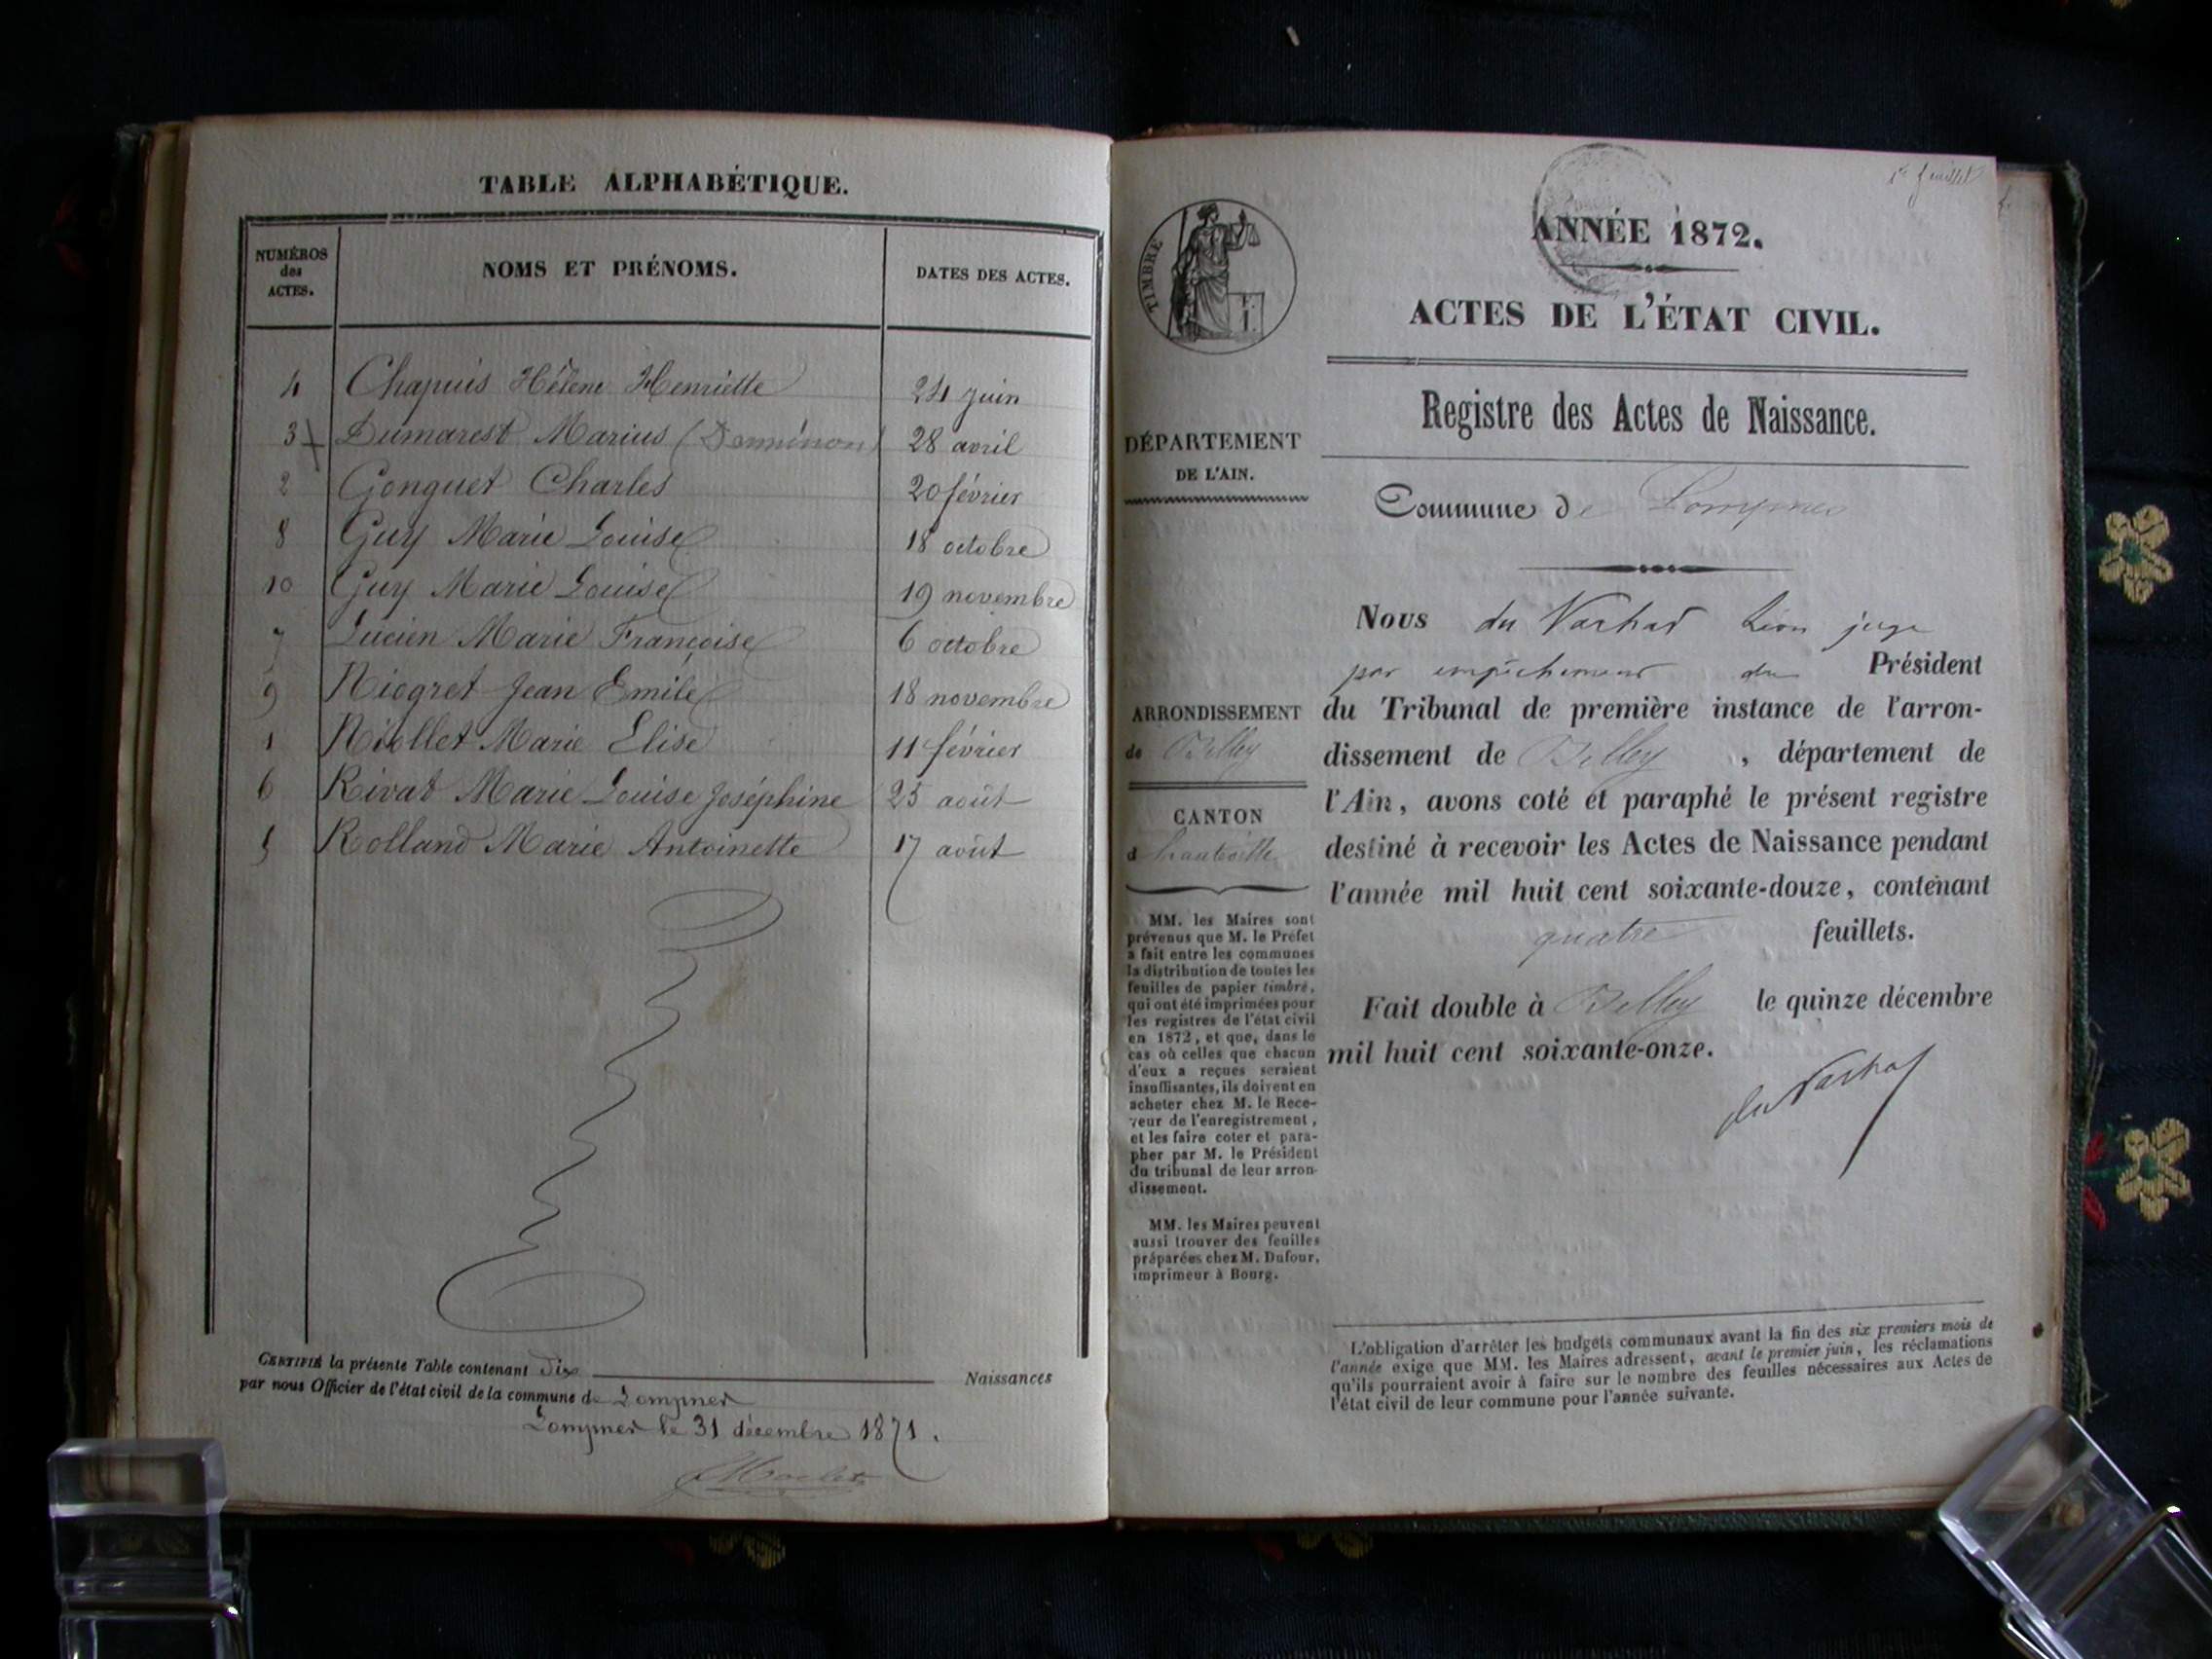 TABLE ALPHABÉTIQUE.
NUMÉROS
des
ACTES.
NOMS ET PRÉNOMS.
DATES DES ACTES.
4 Chapuis Hélene Henriette 24 juin
3 Dumarest Marius 28 avril
2 Gonguet Charles 20 février
8 Guy Marie Louise 18 octobre
10 Guy Marie Louise 19 novembre
7 Lucien Marie Françoise 6 octobre
9 Niogret Jean Emile 18 novembre
1 Niollet Marie Elise 11 février
6 Rivat Marie Louise Joséphine 25 août
5 Rolland Marie Antoinette 17 août
CERTIFIÉ la présente Table contenant Dix Naissances
par nous Officier de l'état civil de la commune de Lompnes
Lompnes le 31 décembre 1871.
1er feuillet
TIMBRE
ANNÉE 1872.
ACTES DE L'ÉTAT CIVIL.
Registre des Actes de Naissance.
DÉPARTEMENT
DE L'AIN.
Commune de Lompnes
ARRONDISSEMENT
de Belley
CANTON
d'hauteville
MM. les Maires sont
prévenus que M. le Préfet
a fait entre les communes
la distribution de toutes les
feuilles de papier timbré,
qui ont été imprimées pour
les registres de l'état civil
en 1872, et que, dans le
cas où celles que chacun
d'eux a reçues seraient
insuffisantes, ils doivent en
acheter chez M. le Rece-
veur de l'enregistrement,
et les faire coter et para-
pher par M. le Président
du tribunal de leur arron-
dissement.
MM. les Maires peuvent
aussi trouver des feuilles
préparées chez M. Dufour,
imprimeur à Bourg.
Nous du Nachat Léon juge
par empêchement du Président
du Tribunal de première instance de l'arron-
dissement de Belley, département de
l'Ain, avons coté et paraphé le présent registre
destiné à recevoir les Actes de Naissance pendant
l'année mil huit cent soixante-douze, contenant
quatre feuillets.
Fait double à Belley le quinze décembre
mil huit cent soixante-onze.
du Nachat
L'obligation d'arrêter les budgets communaux avant la fin des six premiers mois de
l'année exige que MM. les Maires adressent, avant le premier juin, les réclamations
qu'ils pourraient avoir à faire sur le nombre des feuilles nécessaires aux Actes de
l'état civil de leur commune pour l'année suivante.